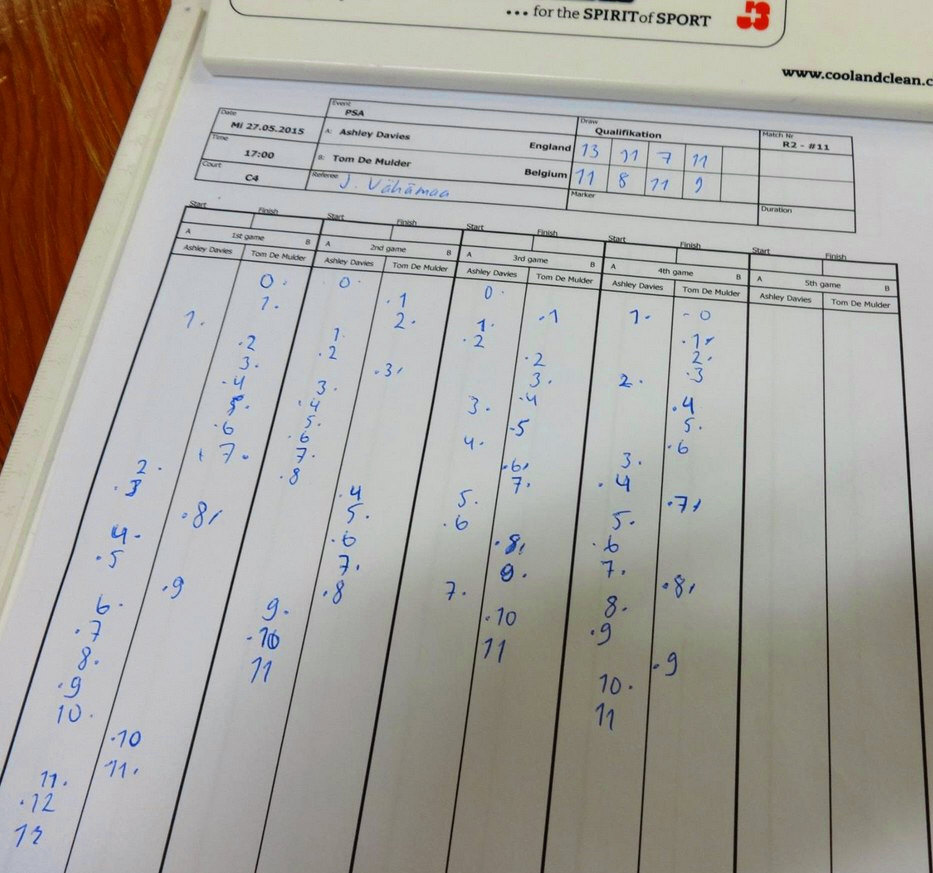 ... for the SPIRIT of SPORT
www.coolandclean.c
Date
Mi 27.05.2015
Event
PSA
Draw
Qualifikation
Match Nr
R2 - #11
Time
17:00
A: Ashley Davies England 13 11 7 11
B: Tom De Mulder Belgium 11 8 11 9
Court
C4
Referee J. Vähämaa
Marker
Duration
Start Finish Start Finish Start Finish Start Finish Start Finish
A 1st game B A 2nd game B A 3rd game B A 4th game B A 5th game B
Ashley Davies Tom De Mulder Ashley Davies Tom De Mulder Ashley Davies Tom De Mulder Ashley Davies Tom De Mulder Ashley Davies Tom De Mulder
0.
1.
1.
.2
3.
.4
5.
.6
7.
2.
.3
.8
4.
.5
.9
6.
.7
8.
.9
10.
.10
11.
11.
.12
13
0.
.1
2.
1.
.2
.3
3.
.4
5.
.6
7.
.8
.4
5.
.6
7.
.8
9.
.10
11
0.
.1
1.
.2
.2
3.
.4
3.
.5
4.
.6
7.
5.
.6
.8
9.
7.
.10
11
.0
1.
.1
2.
.3
2.
.4
5.
.6
3.
.4
.7
5.
.6
7.
.8
8.
.9
.9
10.
11